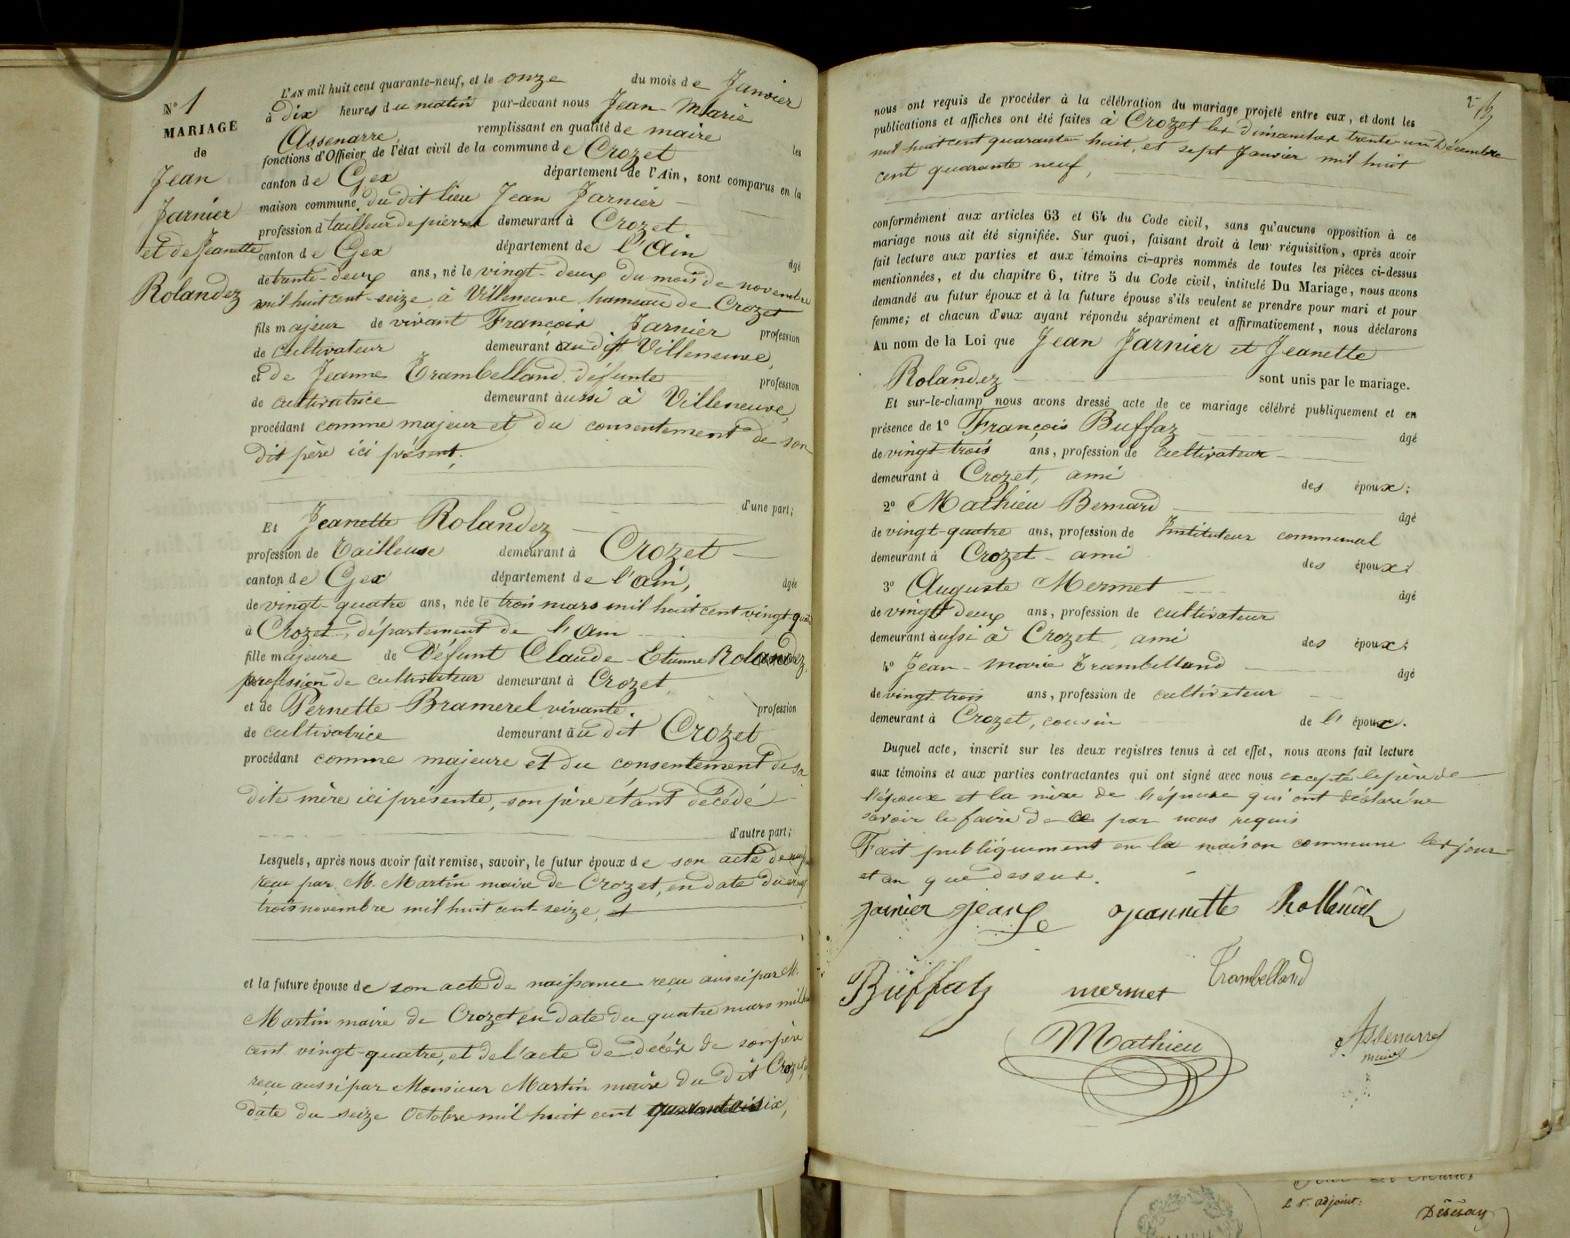 N° 1
MARIAGE
de
Jean
Jarnier
et de Jeanette
Rolandez
L'AN mil huit cent quarante-neuf, et le onze du mois de Janvier
à dix heures du matin par-devant nous Jean-Marie
Assenarre remplissant en qualité de maire les
fonctions d'Officier de l'état civil de la commune de Crozet
canton de Gex département de l'Ain, sont comparus en la
maison commune du dit lieu Jean Jarnier
profession d tailleur de pierres demeurant à Crozet
canton de Gex département de l'Ain âgé
de trente-deux ans, né le vingt-deux du mois de novembre
mil huit cent-seize à Villeneuve hameau de Crozet
fils majeur de vivant François Jarnier profession
de cultivateur demeurant au dit Villeneuve,
et de Jeanne Trambelland défunte profession
de cultivatrice demeurant aussi à Villeneuve,
procédant comme majeur et du consentement de son
dit père ici présent;
d'une part;
Et Jeanette Rolandez
profession de Tailleuse demeurant à Crozet
canton de Gex département de l'Ain, âgée
de vingt-quatre ans, née le trois mars mil huit cent vingt quatre
à Crozet, département de l'Ain
fille majeure de Défunt Claude-Etienne Rolandez,
profession de cultivateur demeurant à Crozet
et de Pernette Bramerel vivante. profession
de cultivatrice demeurant au dit Crozet
procédant comme majeure et du consentement de sa
dite mère ici présente, son père étant décédé
d'autre part;
Lesquels, après nous avoir fait remise, savoir, le futur époux de son acte de
reçu par M. Martin maire de Crozet, en date du
trois novembre mil huit cent-seize, et
et la future épouse de son acte de naissance reçu aussi par M.
Martin maire de Crozet en date du quatre mars mil
cent vingt-quatre, et de l'acte de décès de son père
reçu aussi par Monsieur Martin maire du dit Crozet,
date du seize Octobre mil huit cent
nous ont requis de procéder à la célébration du mariage projeté entre eux, et dont les
publications et affiches ont été faites à Crozet les dimanches trente-un Décembre
mil huit cent quarante huit, et sept Janvier mil huit
cent quarante neuf,
conformément aux articles 63 et 64 du Code civil, sans qu'aucune opposition à ce
mariage nous ait été signifiée. Sur quoi, faisant droit à leur réquisition, après avoir
fait lecture aux parties et aux témoins ci-après nommés de toutes les pièces ci-dessus
mentionnées, et du chapitre 6, titre 5 du Code civil, intitulé Du Mariage, nous avons
demandé au futur époux et à la future épouse s'ils veulent se prendre pour mari et pour
femme; et chacun d'eux ayant répondu séparément et affirmativement, nous déclarons
Au nom de la Loi que Jean Jarnier et Jeanette
Rolandez sont unis par le mariage.
Et sur-le-champ nous avons dressé acte de ce mariage célébré publiquement et en
présence de 1° François Buffaz âgé
de vingt trois ans, profession de cultivateur
demeurant à Crozet, ami des époux;
2° Mathieu Bernard âgé
de vingt-quatre ans, profession de Instituteur communal
demeurant à Crozet - ami des époux;
3° Auguste Mermet âgé
de vingt deux ans, profession de cultivateur
demeurant aussi à Crozet ami des époux;
4° Jean-Marie Trambelland âgé
de vingt trois ans, profession de cultivateur
demeurant à Crozet, cousin de l'époux.
Duquel acte, inscrit sur les deux registres tenus à cet effet, nous avons fait lecture
aux témoins et aux parties contractantes qui ont signé avec nous excepté le père de
l'époux et la mère de l'épouse qui ont déclaré ne
savoir le faire de ce par nous requis
Fait publiquement en la maison commune les jour
et an que dessus.
Jarnier Jean Jeannette Rollandez
Buffaz mermet Trambelland
Mathieu Assenarre
maire
2d. adjoint: